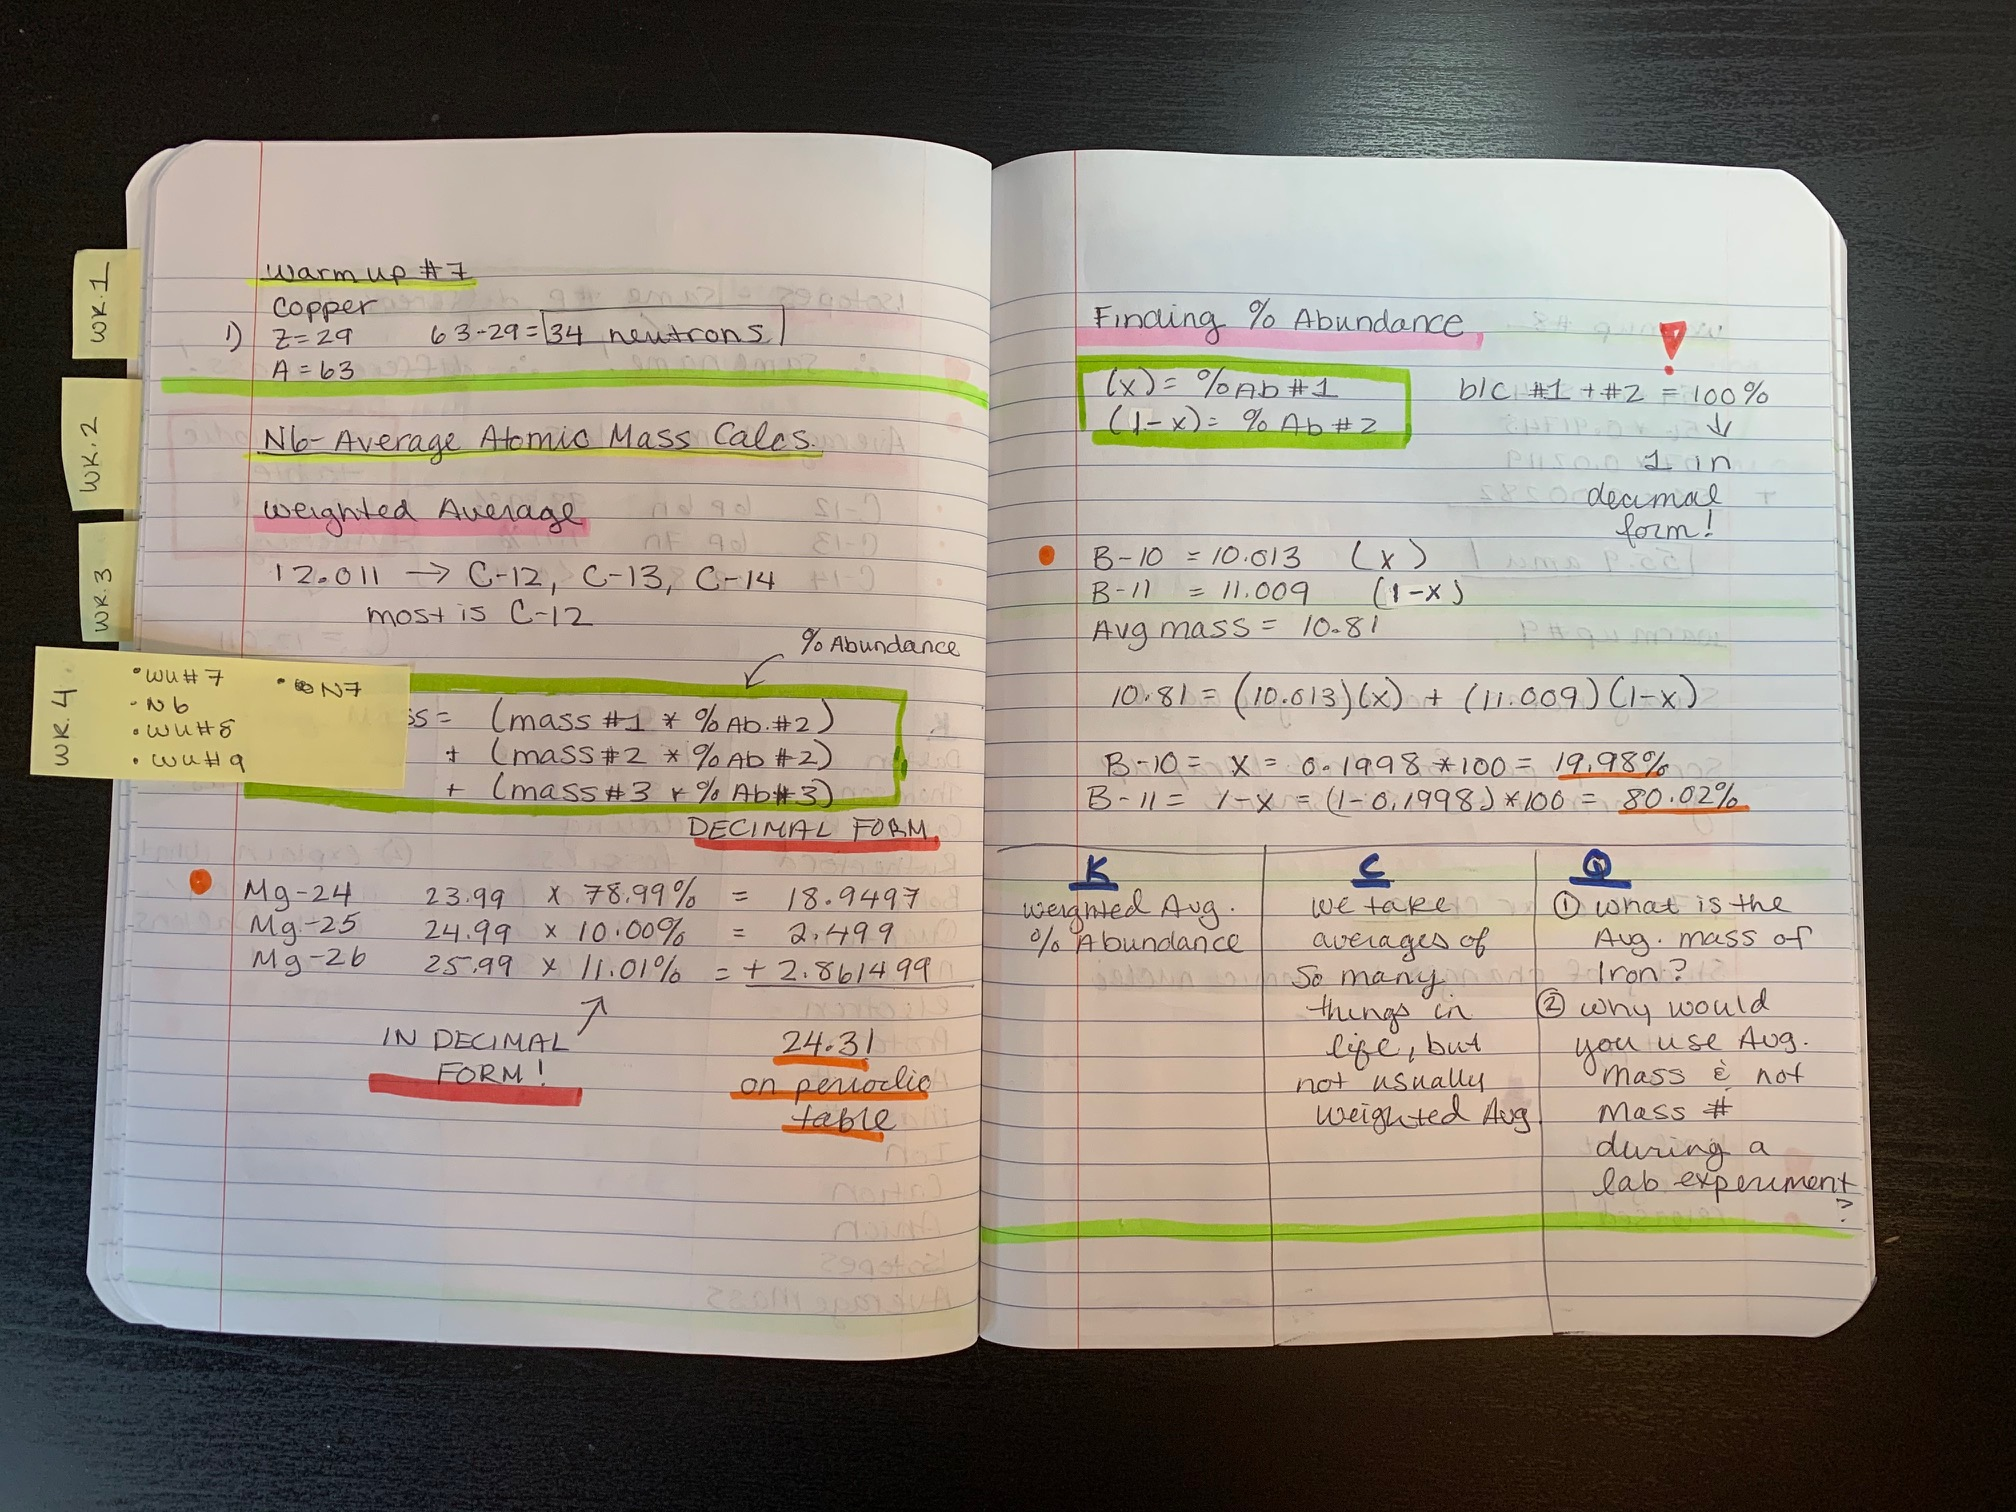 WK.1
WK.2
WK.3
WK.4
•WU#7
•N7
-N6
•WU#8
•WU#9
Warm up #7
Copper
1) Z=29 63-29=34 neutrons
A=63
N6-Average Atomic Mass Calcs.
Weighted Average
12.011 → C-12, C-13, C-14
most is C-12
% Abundance
ss= (mass #1 * % Ab.#2)
+ (mass #2 * % Ab #2)
+ (mass #3 * % Ab #3)
DECIMAL FORM
Mg-24 23.99 x 78.99% = 18.9497
Mg-25 24.99 x 10.00% = 2.499
Mg-26 25.99 x 11.01% = + 2.861499
IN DECIMAL
FORM!
24.31
on periodic
table
Finding % Abundance
!
(x)= % Ab #1
(1-x)= % Ab #2
b/c #1 + #2 = 100%
↓
1 in
decimal
form!
B-10 = 10.013 (x)
B-11 = 11.009 (1-x)
Avg mass = 10.81
10.81 = (10.013)(x) + (11.009)(1-x)
B-10 = x = 0.1998 *100 = 19.98%
B-11 = 1-x = (1-0.1998)*100 = 80.02%
K
Weighted Avg.
% Abundance
C
We take
averages of
so many
things in
life, but
not usually
weighted Avg
Q
① What is the
Avg. mass of
Iron?
② Why would
you use Avg.
mass & not
Mass #
during a
lab experiment
?